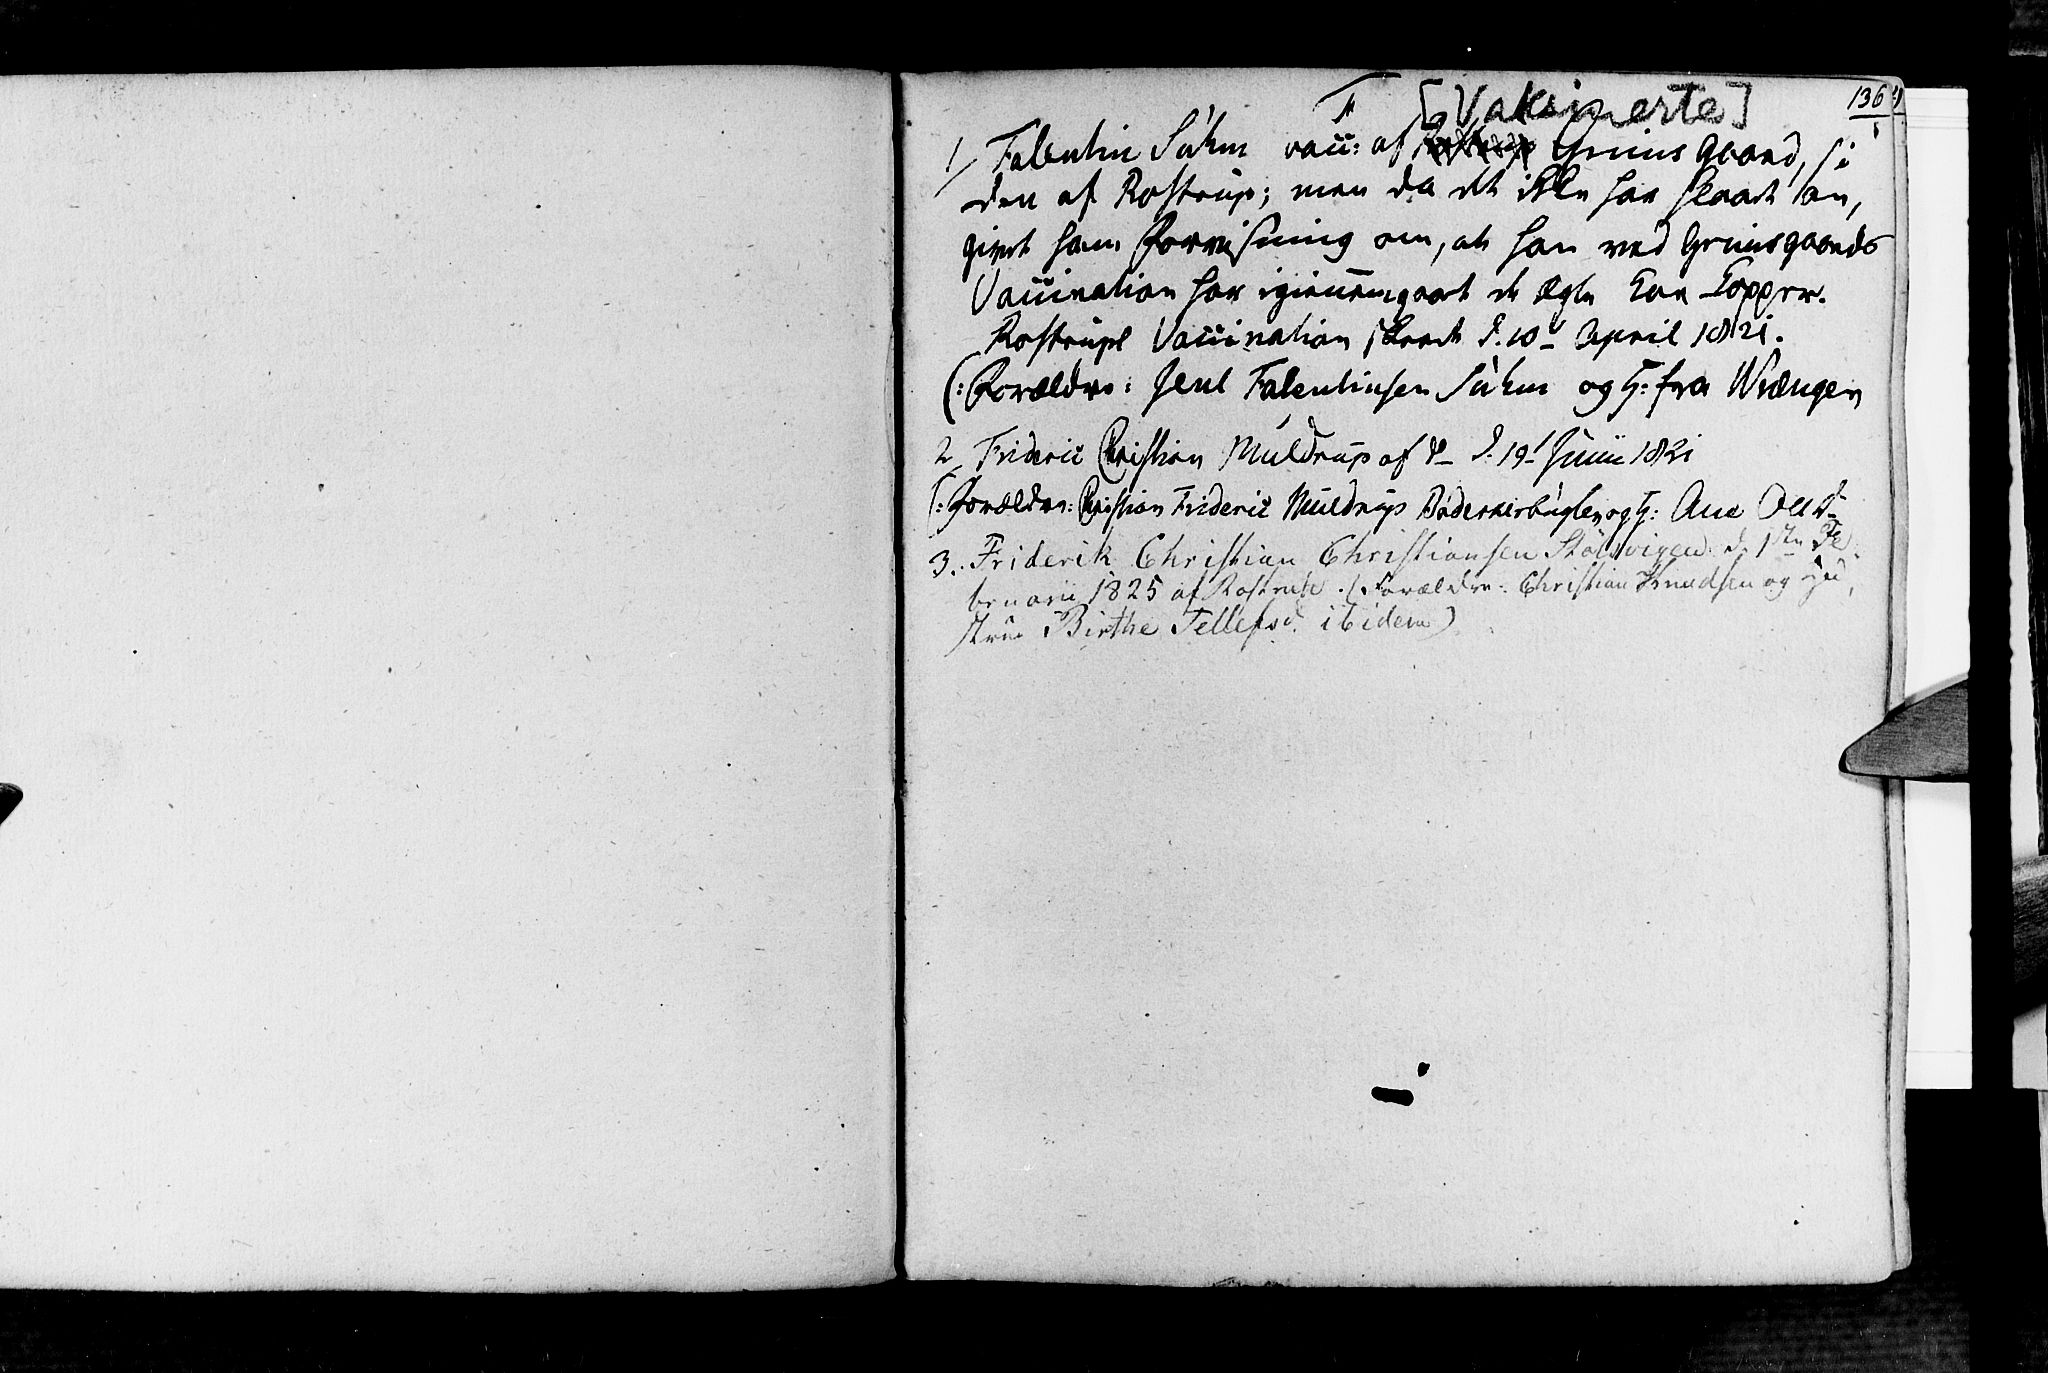 F [Vakinerte] 136
1/ Falentin Sühm vacc: af Grüns Gaard, si
den af Rostrup; men da det ikke har slaaet an,
givet ham Forvisning om, at han ved Grünsgaards
Vaccination har igiennemgaaet de ægte Koe Kopper.
Rostrups Vaccination skeet d. 10d April 1821.
(: Forældre: Jens Falentinsen Sühm og H: fra Wrængen
2/ Frideric Christian Muldrup af do d. 19d Junii 1821
(: Forældre: Christian Frideric Muldrup Bödkerbugten og H: Ane Olsd.
3. Friderik Christian Christiansen Stölsvigen d. 1ste Fe
bruarii 1825 af Rostrup. (Forældre: Christian Knudsen og Hu
strue Birthe Tellefsd. ibidem)